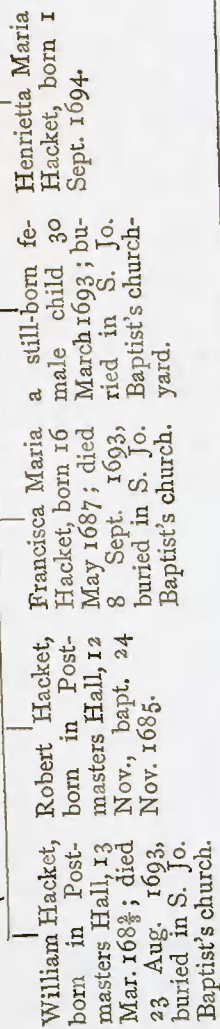 William Hacket,
born in Post-
masters Hall, 13
Mar. 168⅔; died
23 Aug. 1693,
buried in S. Jo.
Baptist's church.
Robert Hacket,
born in Post-
masters Hall, 12
Nov., bapt. 24
Nov. 1685.
Francisca Maria
Hacket, born 16
May 1687; died
8 Sept. 1693,
buried in S. Jo.
Baptist's church.
a still-born fe-
male child 30
March 1693; bu-
ried in S. Jo.
Baptist's church-
yard.
Henrietta Maria
Hacket, born 1
Sept. 1694.